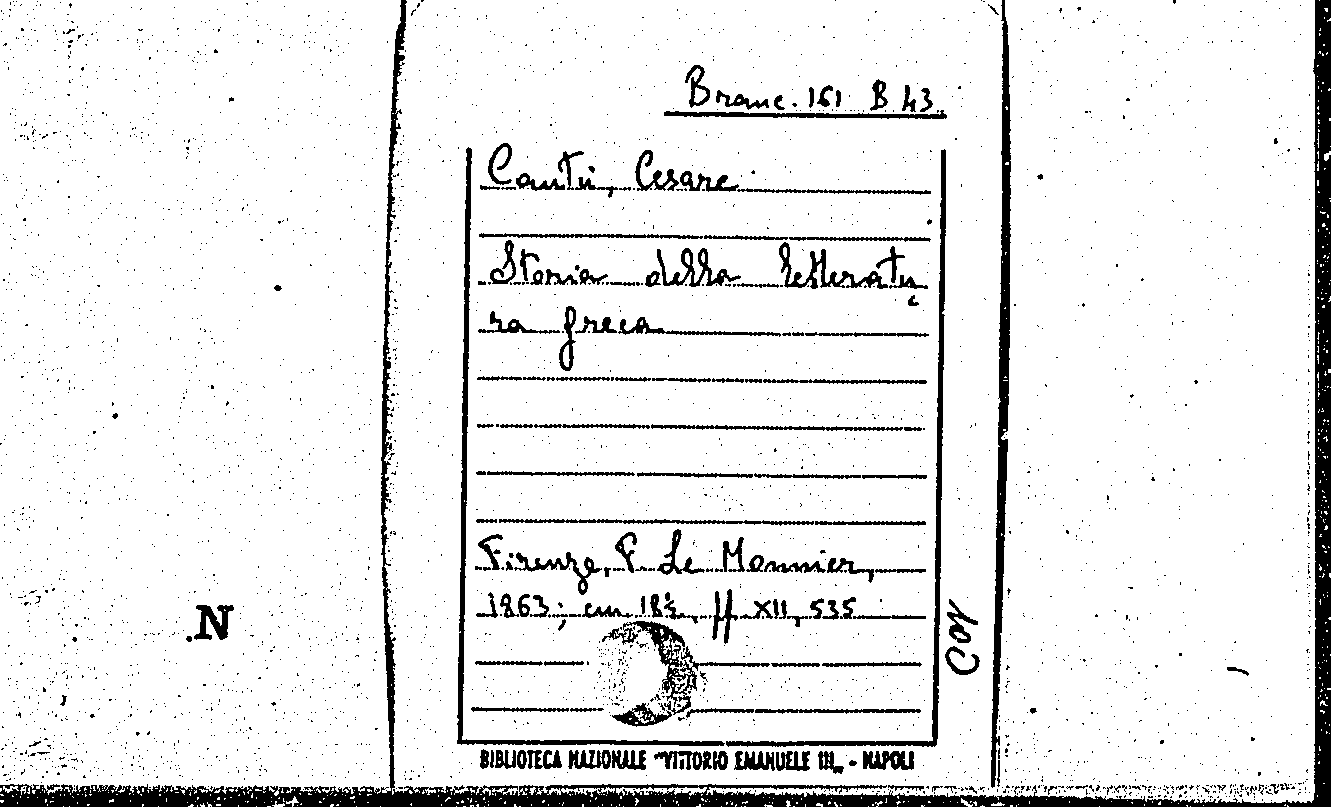 Branc. 161 B 43
Cantù, Cesare
Storia della letteratu
ra greca
Firenze, F. Le Monnier,
1863; cm 18½, pp XII, 535
N
BIBLIOTECA NAZIONALE "VITTORIO EMANUELE III" - NAPOLI